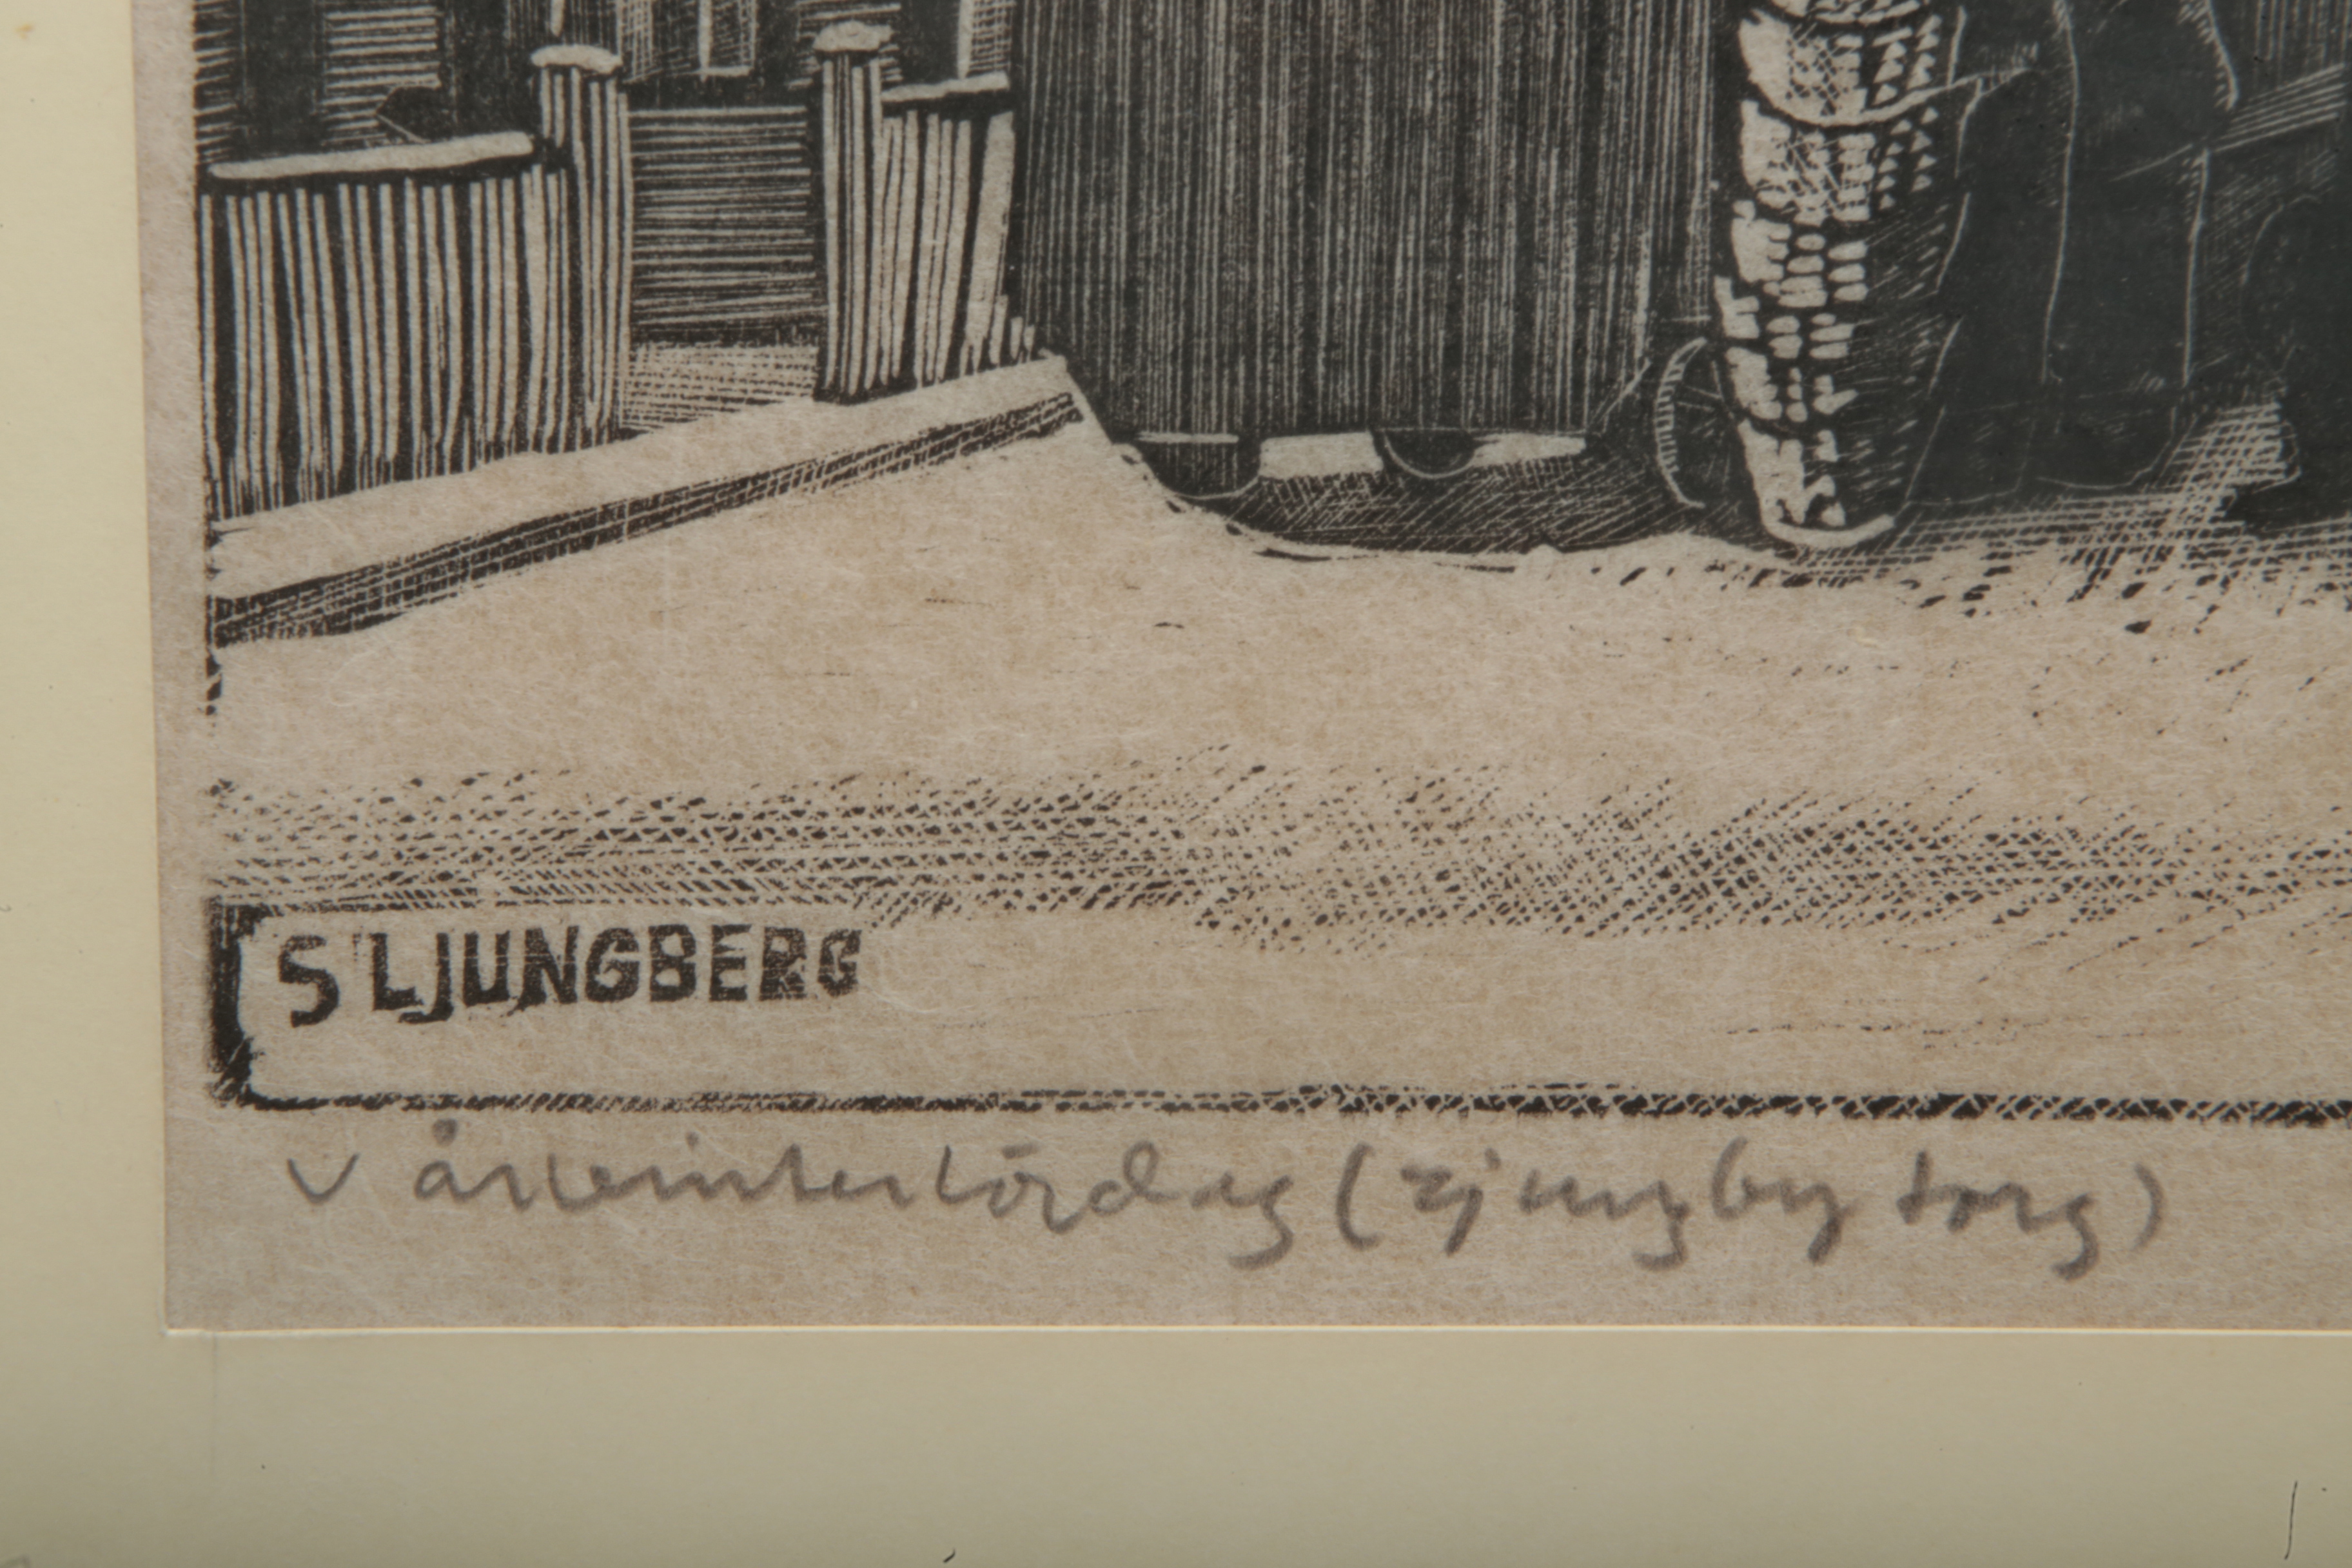 S LJUNGBERG
Vårvinterlördag (Ljungby torg)